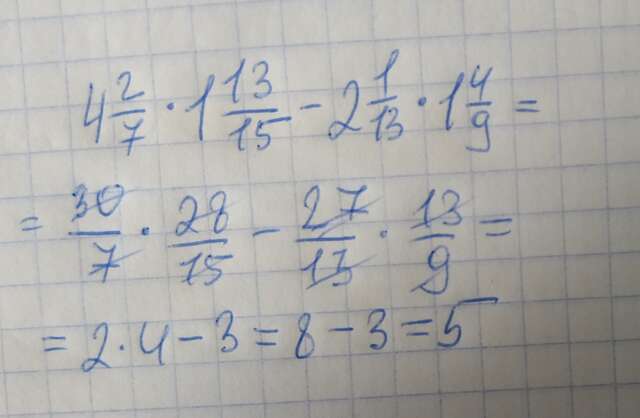 4 2/7 · 1 13/15 − 2 1/13 · 1 4/9 =
= 30/7 · 28/15 − 27/13 · 13/9 =
= 2 · 4 − 3 = 8 − 3 = 5